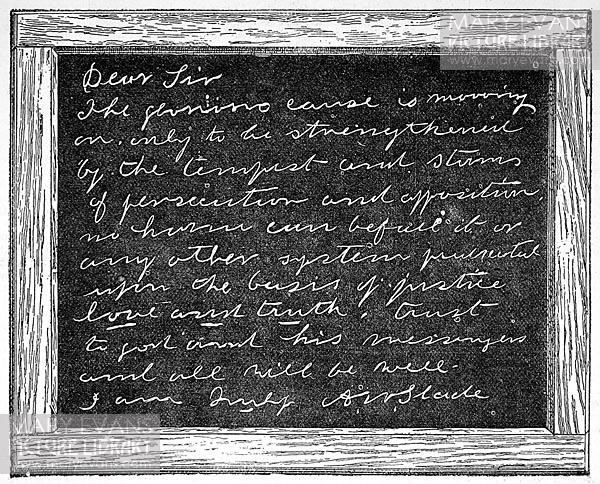 MARY EVANS
PICTURE LIBRARY
www.maryevans.com
Dear Sir
The glorious cause is moving
on. only to be strengthened
by the tempest and storms
of persecution and opposition.
no harm can befall it or
any other system
upon the basis of justice
love and truth. trust
to god and his messengers
and all will be well.
I am Truly A W Slade
MARY EVANS
PICTURE LIBRARY